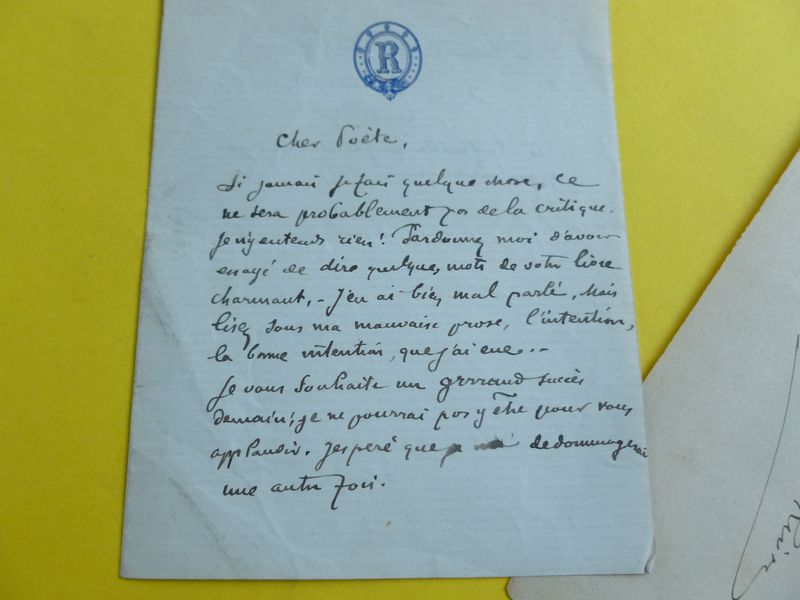 R
Cher Poète,
Si jamais je fais quelque chose, ce
ne sera probablement pas de la critique.
Je n'y entends rien! Pardonnez moi d'avoir
essayé de dire quelques mots de votre livre
charmant, - J'en ai bien mal parlé, Mais
lisez sous ma mauvaise prose, l'intention,
la bonne intention, que j'ai eue...
Je vous souhaite un grrrand succès
demain; je ne pourrai pas y être pour vous
applaudir. J'espère que je dedommagerai
une autre fois.